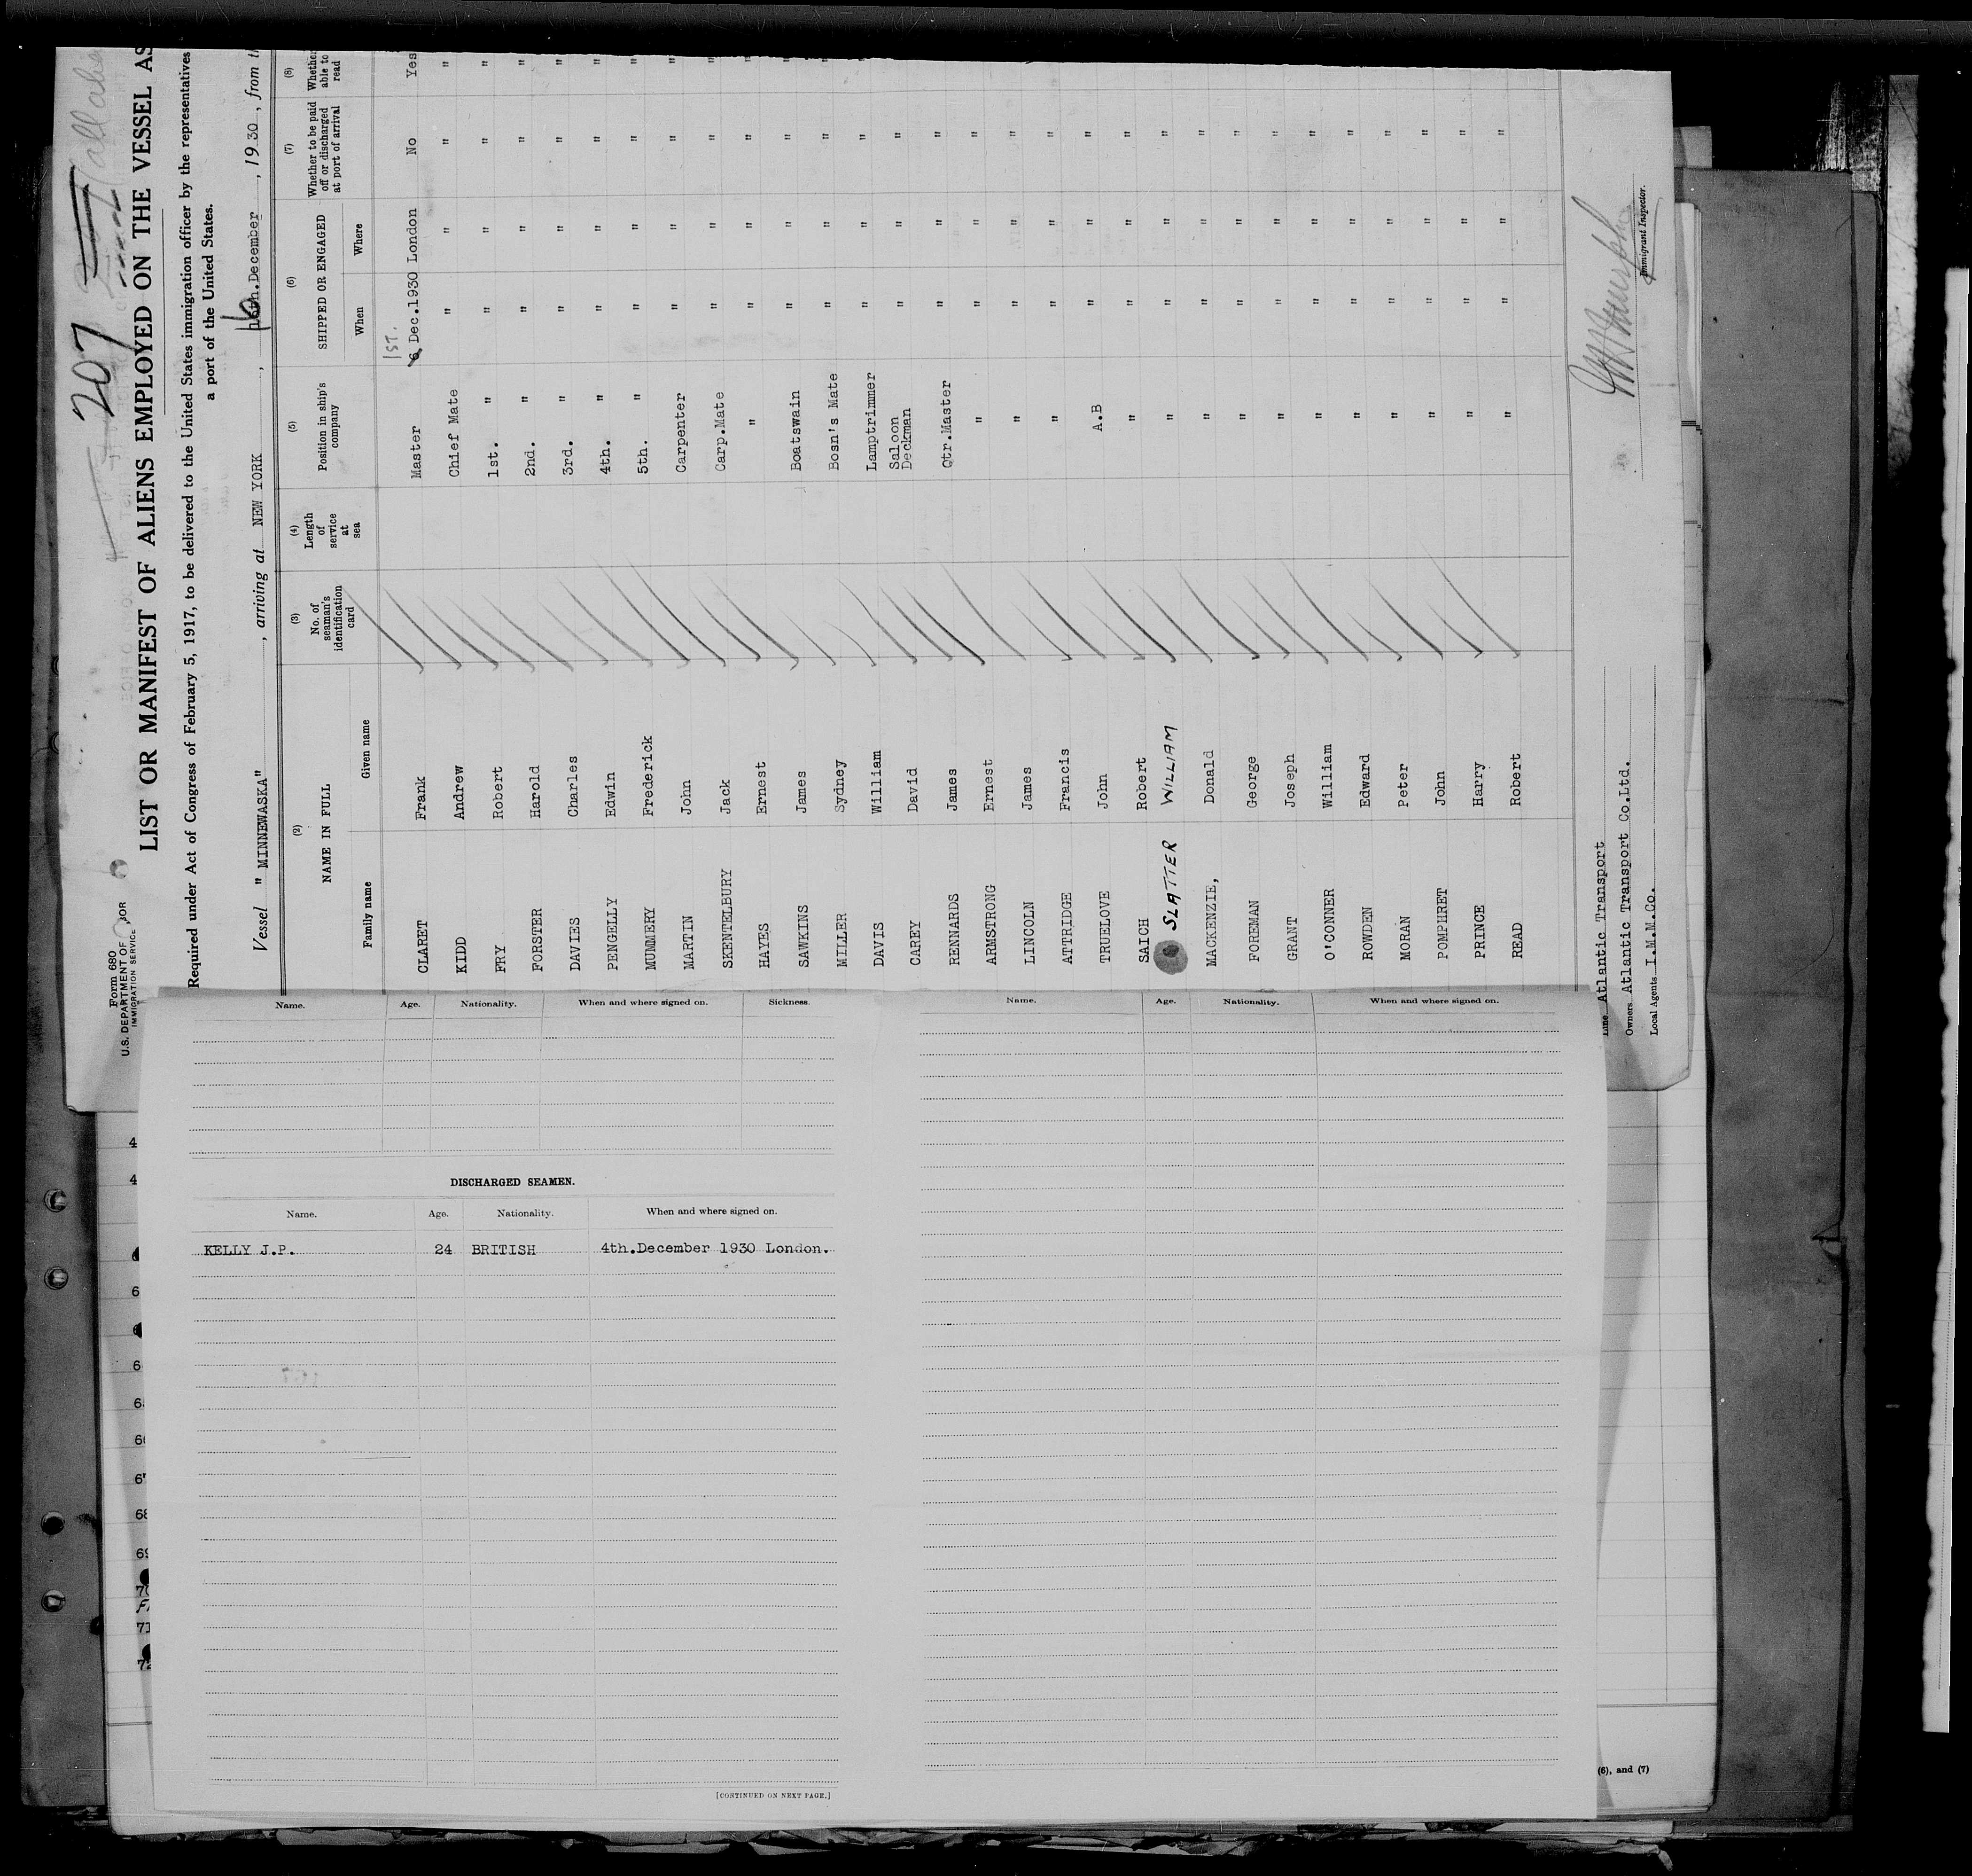 207
Form 680
U.S. DEPARTMENT OF
IMMIGRATION SERVICE
LIST OR MANIFEST OF ALIENS EMPLOYED ON THE VESSEL AS
Required under Act of Congress of February 5, 1917, to be delivered to the United States immigration officer by the representatives
a port of the United States.
Vessel "MINNEWASKA", arriving at NEW YORK, 16th.December, 1930, from
(2) (3) (4) (5) (6) (7) (8)
NAME IN FULL No. of seaman's identification card Length of service at sea Position in ship's company SHIPPED OR ENGAGED Whether to be paid off or discharged at port of arrival Whether able to read
Family name Given name When Where
1ST.
CLARET Frank Master 6 Dec.1930 London No Yes
KIDD Andrew Chief Mate " " " "
FRY Robert 1st. " " " " "
FORSTER Harold 2nd. " " " " "
DAVIES Charles 3rd. " " " " "
PENGELLY Edwin 4th. " " " " "
MUMMERY Frederick 5th. " " " " "
MARTIN John Carpenter " " " "
SKENTELBURY Jack Carp.Mate " " " "
HAYES Ernest " " " " "
SAWKINS James Boatswain " " " "
MILLER Sydney Bosn's Mate " " " "
DAVIS William Lamptrimmer " " " "
CAREY David Saloon Deckman " " "
RENNARDS James Qtr.Master " " "
ARMSTRONG Ernest " " " "
LINCOLN James " " " "
ATTRIDGE Francis " " " "
TRUELOVE John A.B " " "
SAICH Robert " " " "
SLATTER WILLIAM " " " "
MACKENZIE, Donald " " " "
FOREMAN George " " " "
GRANT Joseph " " " "
O'CONNER William " " " "
ROWDEN Edward " " " "
MORAN Peter " " " "
POMPHRET John " " " "
PRINCE Harry " " " "
READ Robert " " " "
Line Atlantic Transport
Owners Atlantic Transport Co.Ltd.
Local Agents I.M.M.Co.
Immigrant Inspector.
Name. Age. Nationality. When and where signed on. Sickness.
DISCHARGED SEAMEN.
Name. Age. Nationality. When and where signed on.
KELLY J.P. 24 BRITISH 4th.December 1930 London.
[CONTINUED ON NEXT PAGE.]
Name. Age. Nationality. When and where signed on.
4
4
6
6
6
67
68
69
71
72
(6), and (7)